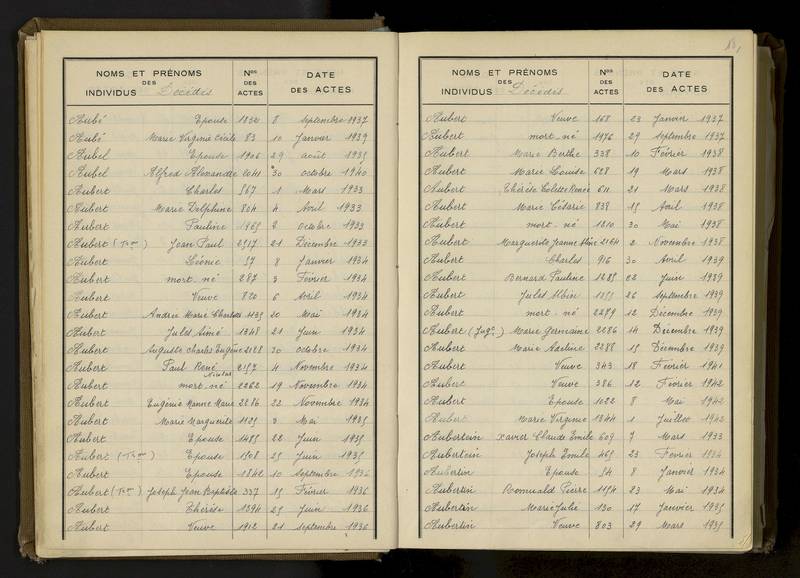 NOMS ET PRÉNOMS DES INDIVIDUS Décédés | Nos DES ACTES | DATE DES ACTES
Aubé Epouse 1832 8 Septembre 1937
Aubé Marie Virginie Cécile 83 10 Janvier 1939
Aubel Epouse 1906 29 août 1935
Aubel Alfred Alexandre 2041 30 octobre 1940
Aubert Charles 567 1 Mars 1933
Aubert Marie Delphine 804 4 Avril 1933
Aubert Pauline 1965 2 octobre 1933
Aubert Jean Paul 2517 21 Décembre 1933
Aubert Léonie 57 8 Janvier 1934
Aubert mort né 287 3 Février 1934
Aubert Veuve 820 6 Avril 1934
Aubert Andrée Marie 1135 20 Mai 1934
Aubert Jules Aimé 1348 21 Juin 1934
Aubert Auguste Charles Eugène 2128 30 octobre 1934
Aubert Paul René Nicolas 2157 4 Novembre 1934
Aubert mort né 2262 19 Novembre 1934
Aubert Eugénie Marie 2286 22 Novembre 1934
Aubert Marie Marguerite 1105 3 Mai 1935
Aubert Epouse 1485 22 Juin 1935
Aubert Epouse 1508 25 Juin 1935
Aubert Epouse 1842 10 Septembre 1936
Aubert Joseph Jean Baptiste 337 15 Février 1936
Aubert Thérèse 1394 25 Juin 1936
Aubert Veuve 1912 21 septembre 1936
NOMS ET PRÉNOMS DES INDIVIDUS Décédés | Nos DES ACTES | DATE DES ACTES
Aubert Veuve 168 23 Janvier 1937
Aubert mort né 1976 29 septembre 1937
Aubert Marie Berthe 338 10 Février 1938
Aubert Marie Louise 628 19 Mars 1938
Aubert Thérèse Colette Renée 611 21 Mars 1938
Aubert Marie Césarie 838 15 Avril 1938
Aubert mort né 1210 30 Mai 1938
Aubert Marguerite Jeanne 2164 2 Novembre 1938
Aubert Charles 916 30 Avril 1939
Aubert Bernard Pauline 1285 22 Juin 1939
Aubert Jules Albin 26 septembre 1939
Aubert mort né 2259 12 Décembre 1939
Aubert Marie Germaine 2286 14 Décembre 1939
Aubert Marie Adeline 2288 15 Décembre 1939
Aubert Veuve 343 18 Février 1941
Aubert Veuve 386 12 Février 1942
Aubert Epouse 1022 8 Mai 1942
Aubert Marie Virginie 1344 1 Juillet 1942
Aubertein Xavier Claude Emile 609 7 Mars 1933
Aubertein Joseph Emile 465 23 Février 1934
Aubertin Epouse 54 8 Janvier 1934
Aubertin Romuald Pierre 1154 23 Mai 1934
Aubertin Marie Julie 130 17 Janvier 1935
Aubertin Veuve 803 29 Mars 1935